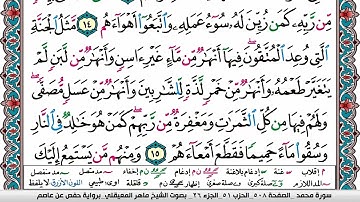 مِّن رَّبِّهِۦ كَمَن زُيِّنَ لَهُۥ سُوٓءُ عَمَلِهِۦ وَٱتَّبَعُوٓا۟ أَهْوَآءَهُم ١٤ مَّثَلُ ٱلْجَنَّةِ
ٱلَّتِى وُعِدَ ٱلْمُتَّقُونَ فِيهَآ أَنْهَٰرٌ مِّن مَّآءٍ غَيْرِ ءَاسِنٍ وَأَنْهَٰرٌ مِّن لَّبَنٍ لَّمْ
يَتَغَيَّرْ طَعْمُهُۥ وَأَنْهَٰرٌ مِّنْ خَمْرٍ لَّذَّةٍ لِّلشَّٰرِبِينَ وَأَنْهَٰرٌ مِّنْ عَسَلٍ مُّصَفًّى
وَلَهُمْ فِيهَا مِن كُلِّ ٱلثَّمَرَٰتِ وَمَغْفِرَةٌ مِّن رَّبِّهِمْ كَمَنْ هُوَ خَٰلِدٌ فِى ٱلنَّارِ
وَسُقُوا۟ مَآءً حَمِيمًا فَقَطَّعَ أَمْعَآءَهُمْ ١٥ وَمِنْهُم مَّن يَسْتَمِعُ إِلَيْكَ
سورة محمد الصفحة ٥٠٨ الحزب ٥١ الجزء ٢٦ بصوت الشيخ ماهر المعيقلي برواية حفص عن عاصم